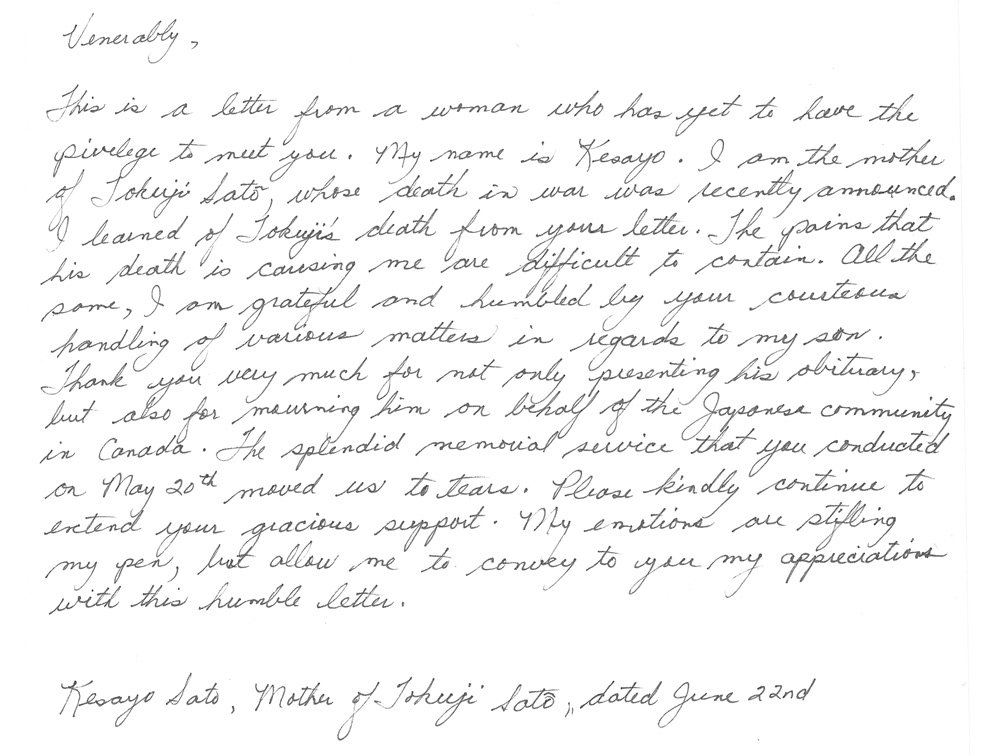 Venerably,
This is a letter from a woman who has yet to have the
pivelege to meet you. My name is Kesayo. I am the mother
of Tokuji Satō, whose death in war was recently announced.
I learned of Tokuji's death from your letter. The pains that
his death is causing me are difficult to contain. All the
same, I am grateful and humbled by your courteous
handling of various matters in regards to my son.
Thank you very much for not only presenting his obituary,
but also for mourning him on behalf of the Japanese community
in Canada. The splendid memorial service that you conducted
on May 20th moved us to tears. Please kindly continue to
extend your gracious support. My emotions are stifling
my pen, but allow me to convey to you my appreciations
with this humble letter.
Kesayo Sato, Mother of Tokuji Satō, dated June 22nd